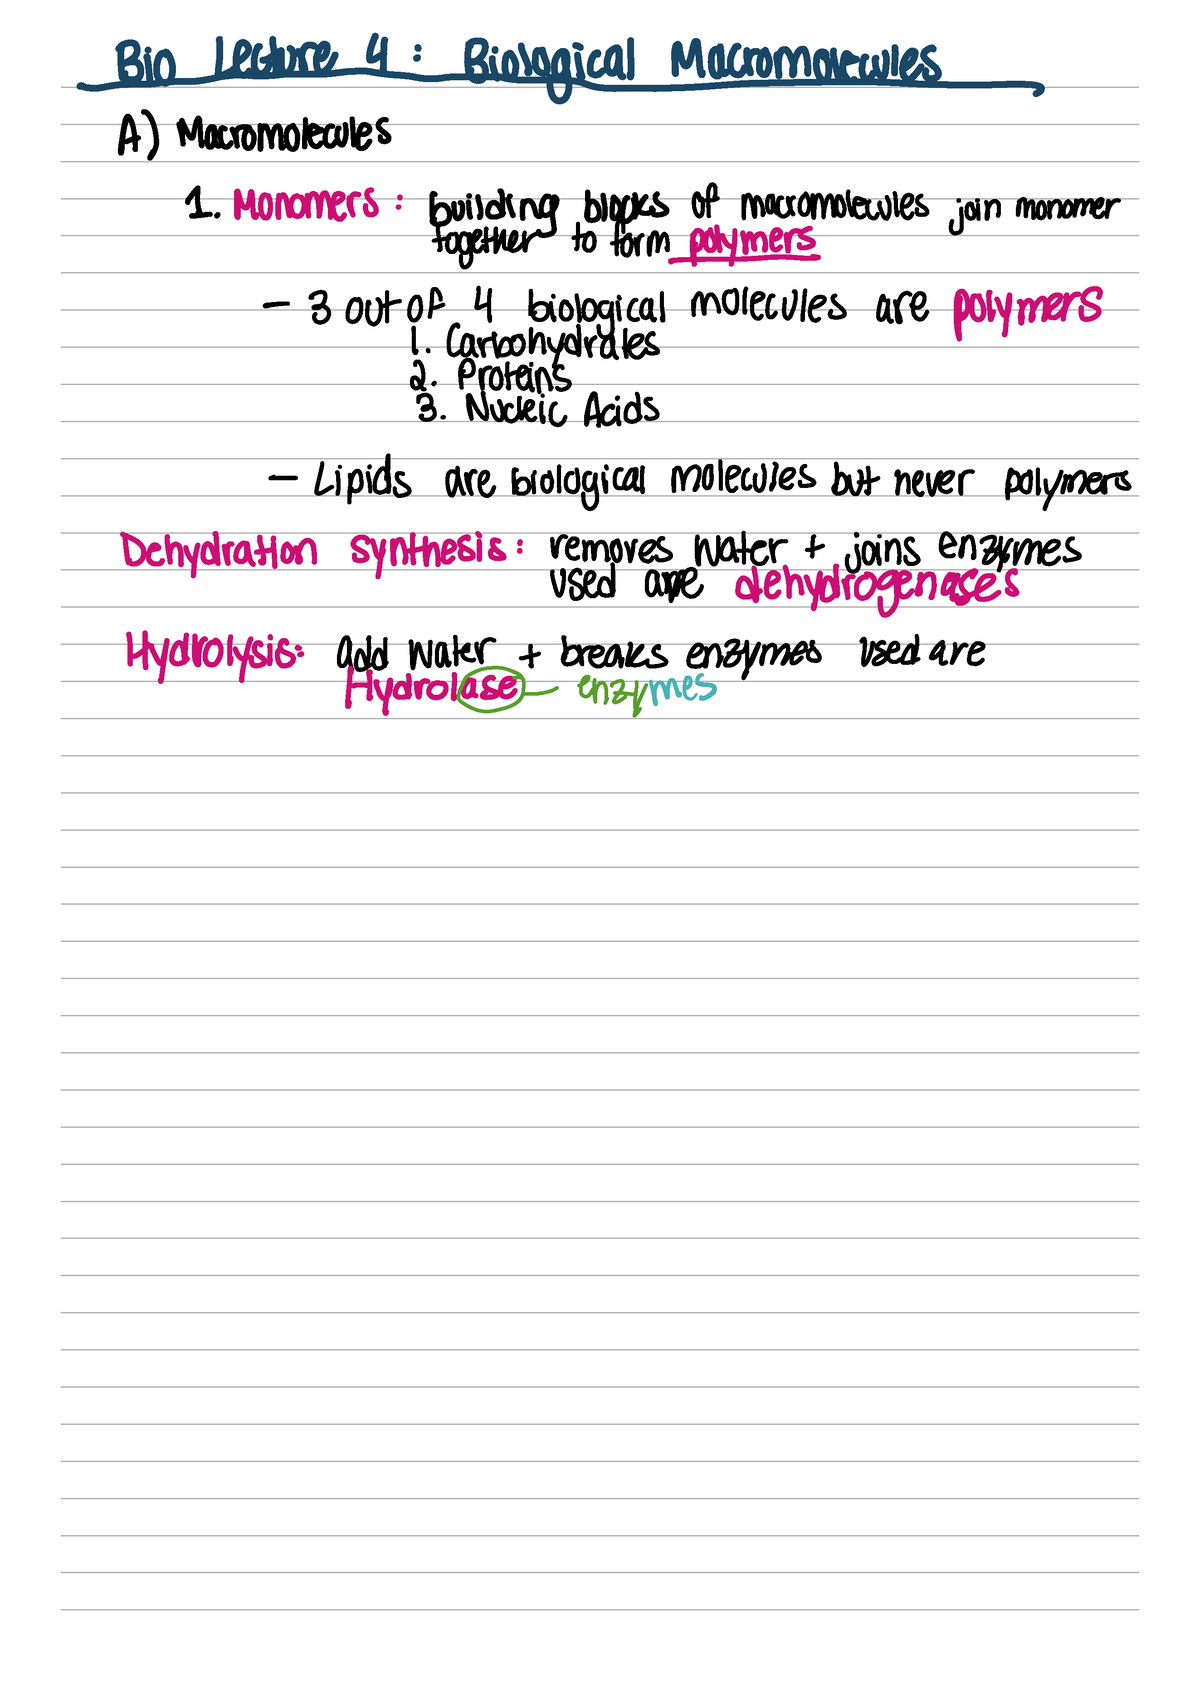 Bio Lecture 4 : Biological Macromolecules
A) Macromolecules
1. Monomers : building blocks of macromolecules join monomer
together to form polymers
- 3 out of 4 biological molecules are polymers
1. Carbohydrates
2. Proteins
3. Nucleic Acids
- Lipids are biological molecules but never polymers
Dehydration synthesis: removes water + joins enzymes
used are dehydrogenases
Hydrolysis: add water + breaks enzymes used are
Hydrolase - enzymes